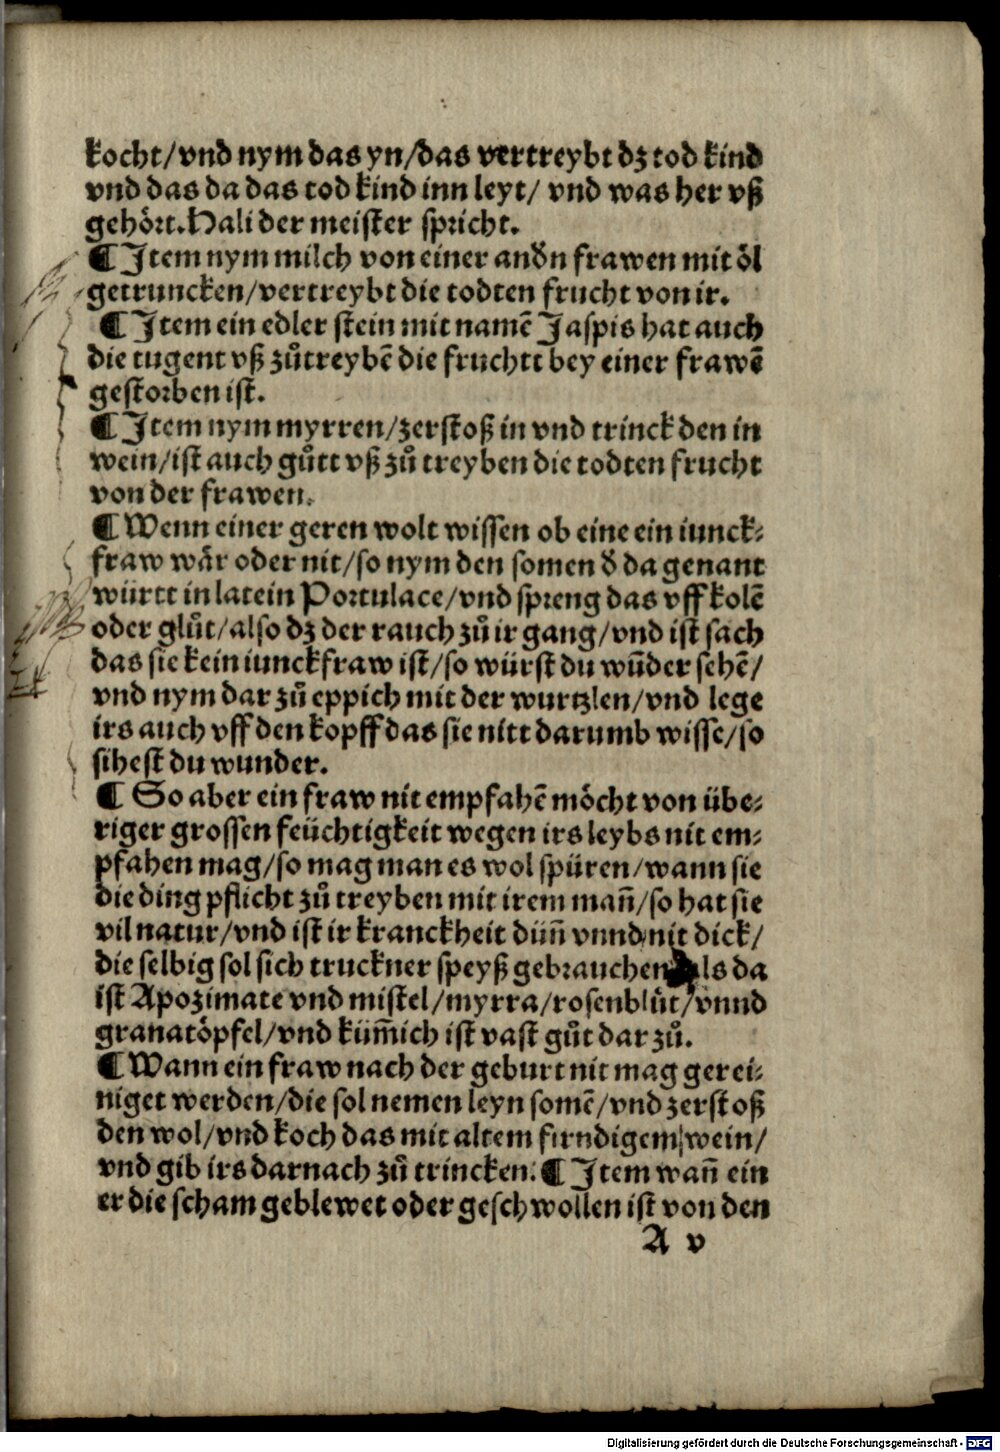 kocht/vnd nym das yn/das vertreybt dz tod kind
vnd das da das tod kind inn leyt/ vnd was her vß
gehört. Hali der meister spricht.
¶ Item nym milch von einer andn frawen mit öl
getruncken/vertreybt die todten frucht von ir.
¶ Item ein edler stein mit namē Jaspis hat auch
die tugent vß zůtreybē die fruchtt bey einer frawē
gestorben ist.
¶ Item nym myrren/zerstoß in vnd trinck den in
wein/ist auch gůtt vß zů treyben die todten frucht
von der frawen.
¶ Wenn einer geren wolt wissen ob eine ein iunck⸗
fraw wår oder nit/so nym den somen d da genant
württ in latein Portulace/vnd spreng das vff kolē
oder glůt/also dz der rauch zů ir gang/vnd ist sach
das sie kein iunckfraw ist/so würst du wūder sehē/
vnd nym dar zů eppich mit der wurtzlen/vnd lege
irs auch vff den kopff das sie nitt darumb wisse/so
sihest du wunder.
¶ So aber ein fraw nit empfahē möcht von übe⸗
riger grossen feüchtigkeit wegen irs leybs nit em⸗
pfahen mag/so mag man es wol spüren/wann sie
die ding pflicht zů treyben mit irem mañ/so hat sie
vil natur/vnd ist ir kranckheit düñ vnnd nit dick/
die selbig sol sich truckner speyß gebrauchen als da
ist Apozimate vnd mistel/myrra/rosenblůt/vnnd
granatöpfel/vnd küm̄ich ist vast gůt dar zů.
¶ Wann ein fraw nach der geburt nit mag gerei⸗
niget werden/die sol nemen leyn somē/vnd zerstoß
den wol/vnd koch das mit altem firndigem wein/
vnd gib irs darnach zů trincken. ¶ Item wañ ein
er die scham geblewet oder geschwollen ist von den
A v
Digitalisierung gefördert durch die Deutsche Forschungsgemeinschaft - DFG